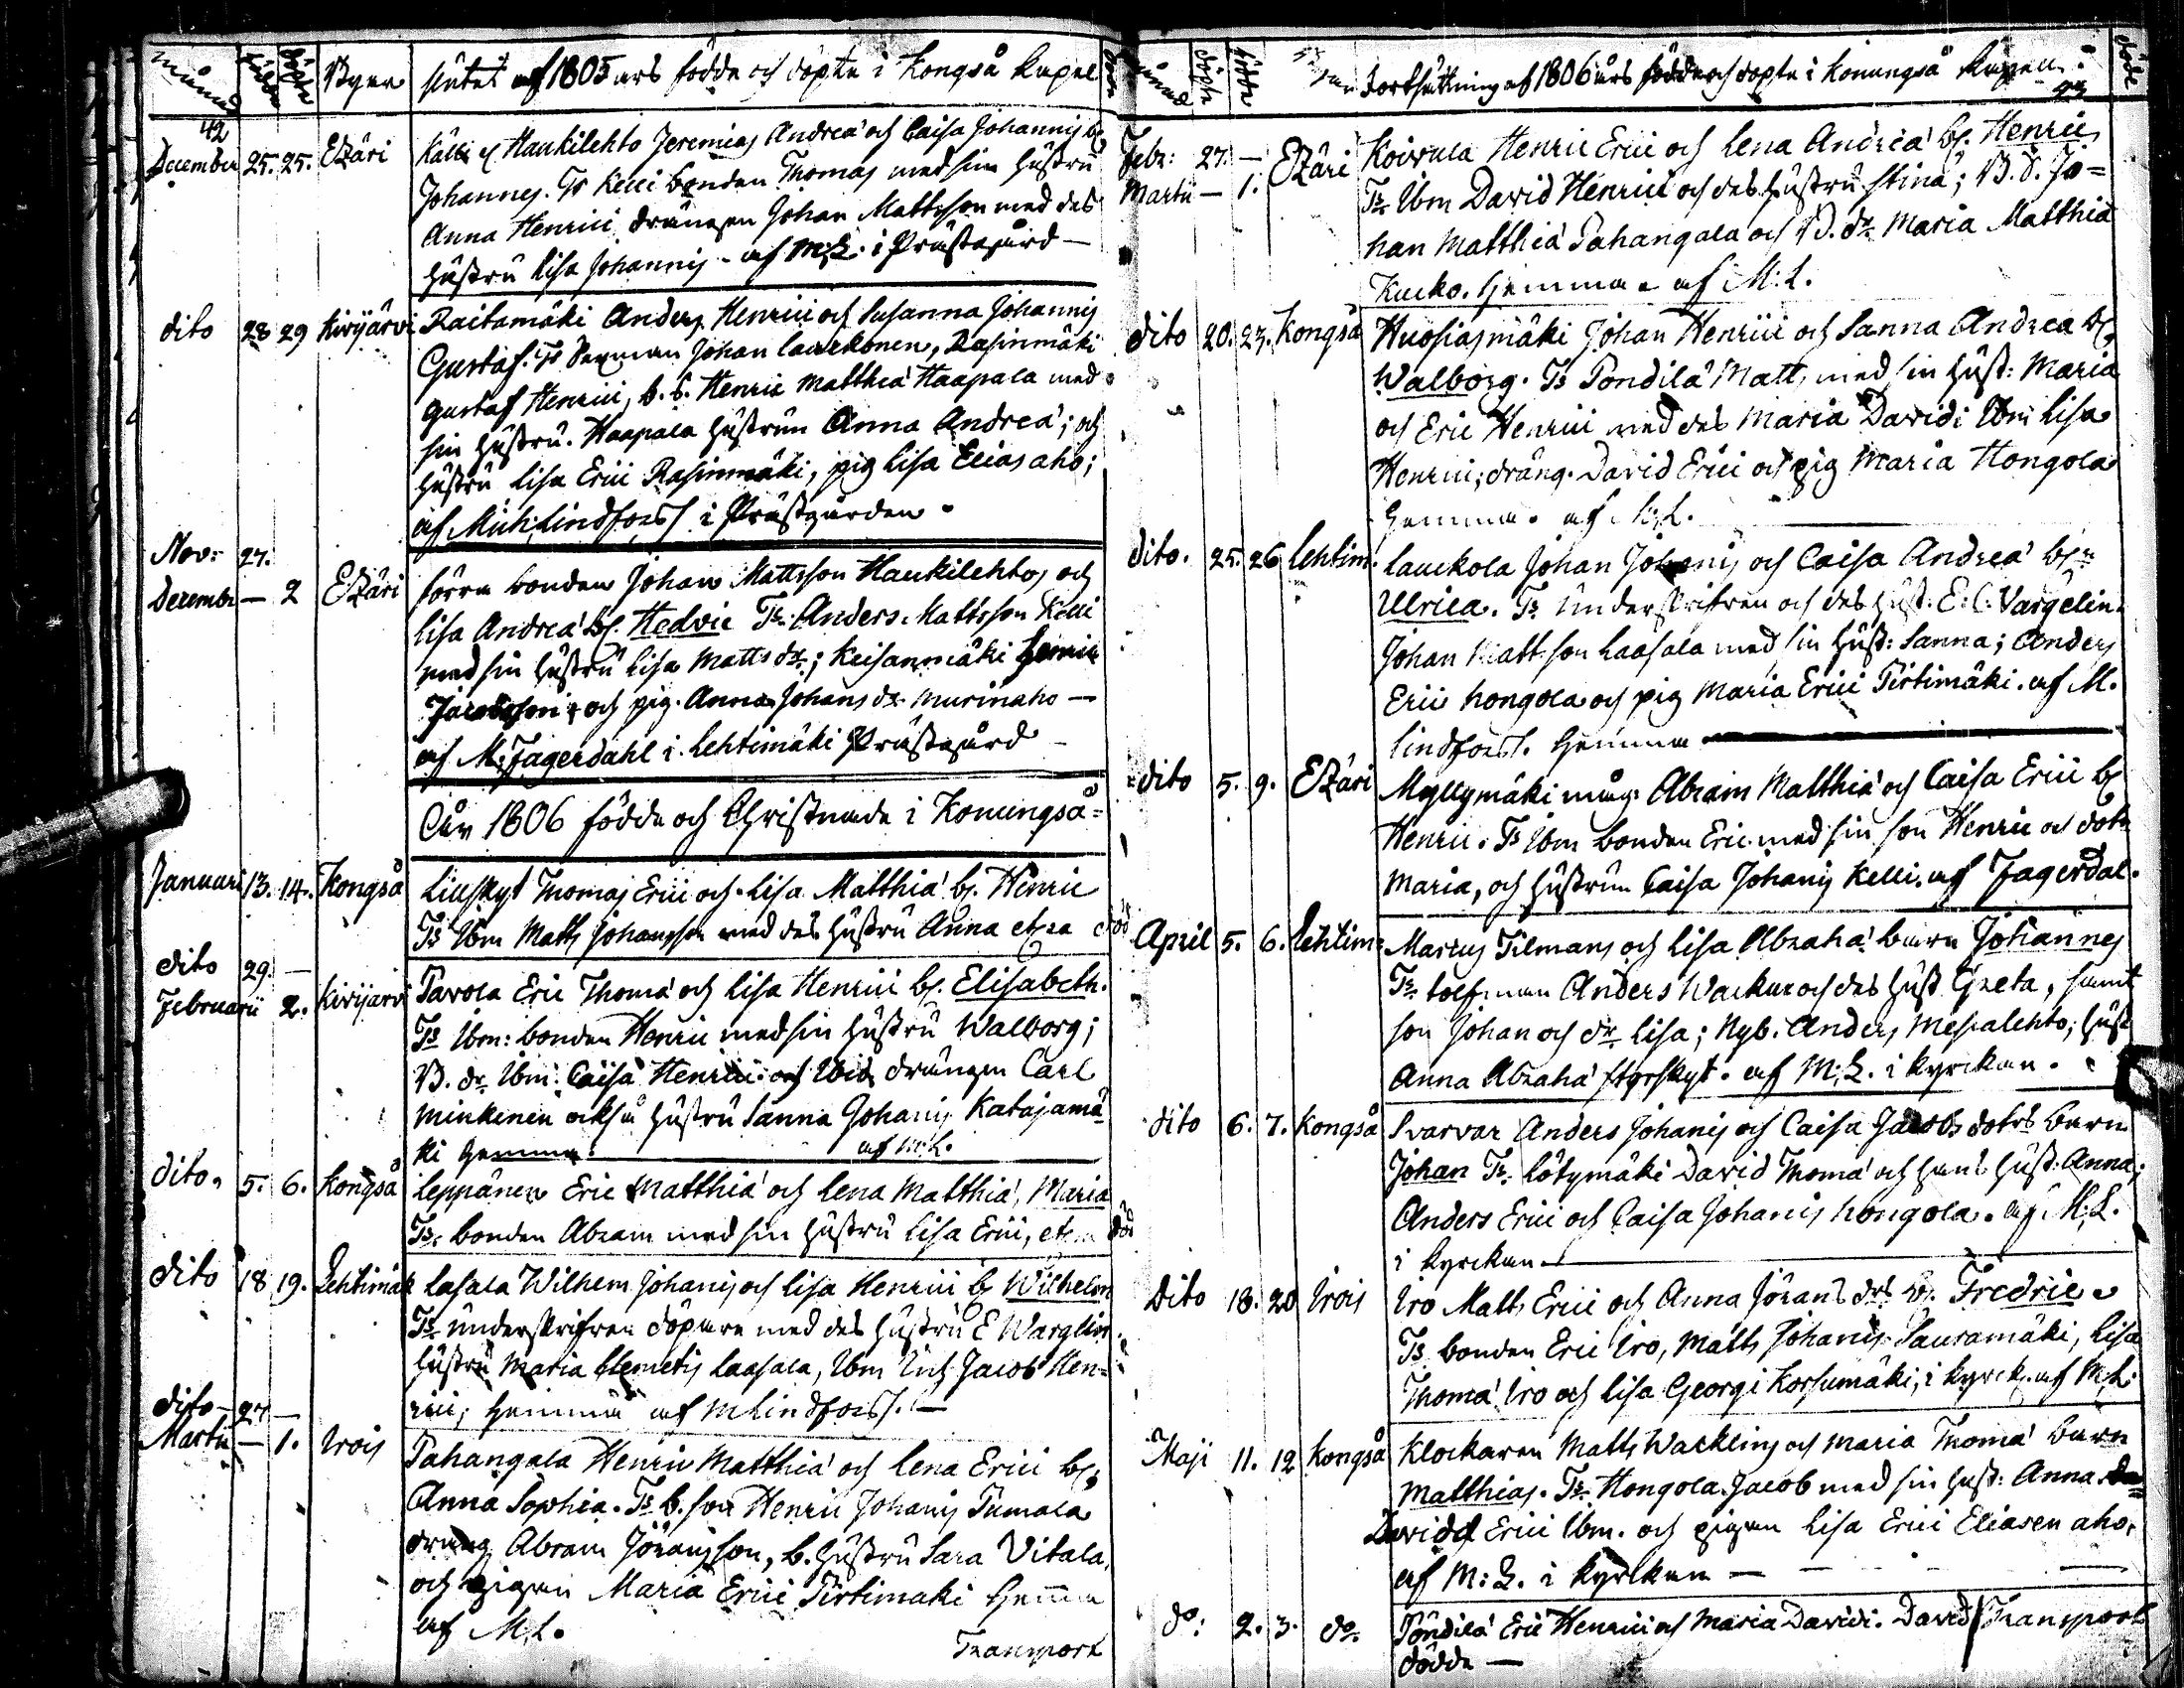 månad födde döpte Byar slutet af 1805 års födde och döpte i Kongså Kapel
42
December 25. 25. Etzäri Källi el Haukilehto Jeremias Andreæ och Caisa Johannis b.
Johannes. Ts Kelli bonden Thomas med sin hustru
Anna Henrici drängen Johan Mattsson med des
hustru Lisa Johannis - af M:L. i Prästegård —
dito 28 29 Kivijärvi Raitamäki Anders Henrici och Susanna Johannis
Gustaf. Ts Sexman Johan Laukkonen, Rasinmäki
Gustaf Henrici, b. s. Henric Matthiæ Haapala med
sin hustru. Haapala hustrun Anna Andreæ; och
hustru Lisa Erici Rasinmäki, pig Lisa Eliasaho;
af Mich: Lindforss i Prästgården.
Nov: 27.
Decembr — 2 Etzäri förra bonden Johan Mattsson Haukilehto, och
Lisa Andreæ b. Hedvic Ts. Anders Mattsson Kelli
med sin hustru Lisa Mattsdr; Keisanmäki Henric
Jacobsson; och pig. Anna Johansdr Murinaho —
af M: Fagerdahl i Lehtimäki Prästegård —
År 1806 födde och Christnade i Konungså =
Januari 13. 14. Kongså Lillskyt Thomas Erici och Lisa Matthiæ b. Henric
Ts Ibm Matts Johansson med des hustru Anna död
dito 29. —
Februarii 2. Kivijärvi Pavola Eric Thomæ och Lisa Henrici b. Elisabeth.
Ts Ibm: bonden Henric med sin hustru Walborg;
B. dr Ibm. Caisa Henrici och Ibid drängen Carl
Minkinen också hustru Sanna Johanis Katajamä
ki hemma. af M:L.
dito. 5. 6. Kongså Leppänen Eric Matthiæ och Lena Matthiæ, Maria
Ts. bonden Abram med sin hustru Lisa Erici, död
dito 18 19. Lehtimäk Lasala Wilhem Johanis och Lisa Henrici b Wilhelm
Ts underskrifven döpare med des hustru E Warglin
hustru Maria Clemetis Laasala, Ibm Jacob Hen=
rici; hemma af M Lindforss. —
dito — 27 —
Martii — 1. Irois Pahangala Henric Matthiæ och Lena Erici b;
Anna Sophia. Ts b. son Henric Johanis Tumala
dräng Abram Jöransson, b. hustru Sara Vitala,
och pigan Maria Erici Pirtimaki hemma
af M.L.
Transport
månad födde döpte Fortsättning af 1806 års födde och döpte i Konungså Kapell. döde
Febr: 27. —
Martii — 1. Etzäri Koivula Henric Erici och Lena Andreæ b. Henric
Ts Ibm David Henrici och des hustru Stina; B. d. Jo=
han Matthiæ Pahangala och B. dr Maria Matthiæ
Kucko. hemma af M:L.
dito 20. 23. Kongså Huosiasmäki Johan Henrici och Sanna Andreæ b,
Walborg. Ts Pöndilä Matts, med sin hust: Maria
och Eric Henrici med des Maria Davidi Ibm Lisa
Henrici; dräng. David Erici och pig Maria Hongola
hemma. af M:L.
dito. 25. 26 Lehtim. Lauckola Johan Johanis och Caisa Andreæ b.
Ulrica. Ts Underskrifven och des hust. E: C: Vargelin.
Johan Mattsson Laasala med sin hust: Sanna; Anders
Erici Hongola och pig Maria Erici Pirtimäki. af M.
Lindforss. hemma —
dito 5. 9. Etzäri Myllymäki måg. Abram Matthiæ och Caisa Erici b
Henric. Ts Ibm bonden Eric med sin son Henric och dotr
Maria, och hustrun Caisa Johanis Kelli. af Fagerdal.
April 5. 6. Lehtim: Marcus Tilmans och Lisa Abrahæ barn Johannes
Ts tolfman Anders Wackar och des hust Greta, samt
son Johan och dr Lisa; Nyb. Anders Metsälehto; hust
Anna Abrahæ Storskyt. af M:L. i Kyrckan.
dito 6. 7. Kongså Svarvar Anders Johanis och Caisa Jacobs dotrs barn
Johan Ts. Lötymäki David Thomæ och hans hust: Anna;
Anders Erici och Caisa Johanis Hongola. af M:L.
i Kyrckan. —
Dito 18. 20 Irois Iro Matts Erici och Anna Jörans drs b. Fredric
Ts. bonden Eric Iro, Matts Johanis Sauramäki, Lisa
Thomæ Iro och Lisa Georgi Korsumäki, i kyrck. af M:L.
Maji 11. 12 Kongså Klockaren Matts Wacklins och Maria Thomæ barn
Matthias. Ts. Hongola Jacob med sin hust: Anna
David Erici Ibm. och pigan Lisa Erici Eliasen aho.
af M:L. i Kyrckan —
do: 2. 3. do. Pöndilä Eric Henrici och Maria Davidi. David Transport
födde —